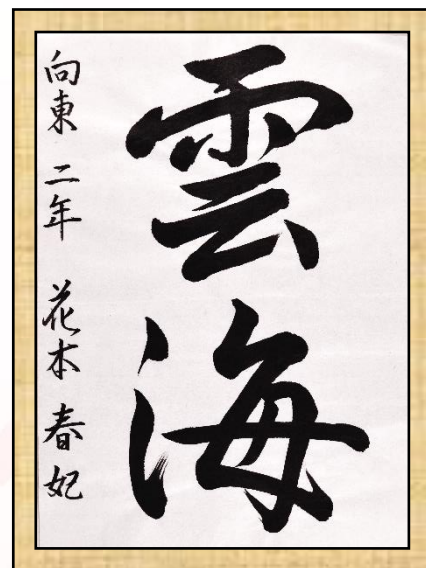 雲海
向東 二年 花本 春妃